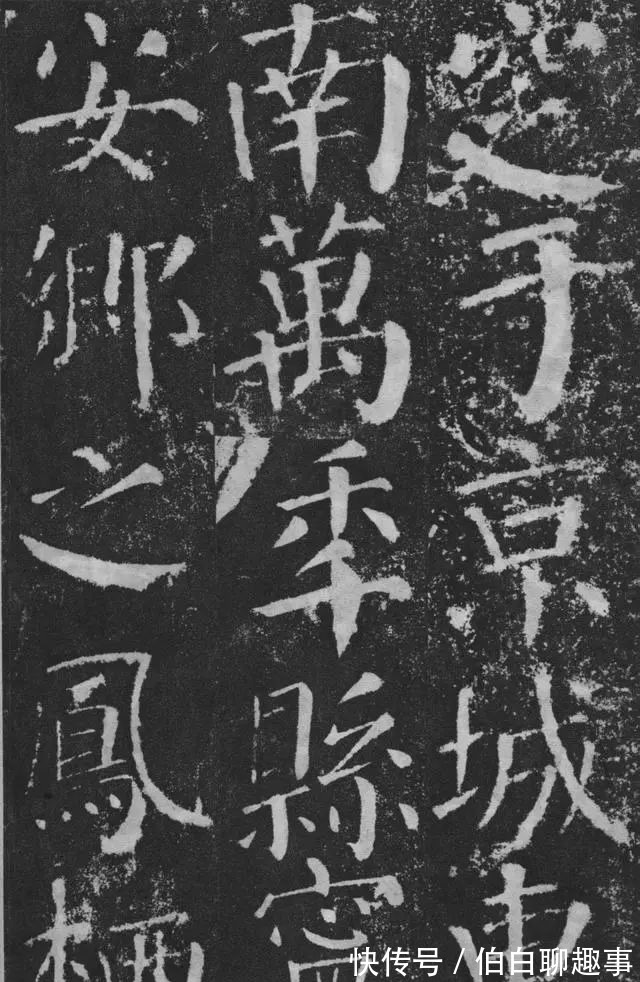 于京城東
南萬秊縣寧
安鄉之鳳栖
快传号/伯白聊趣事